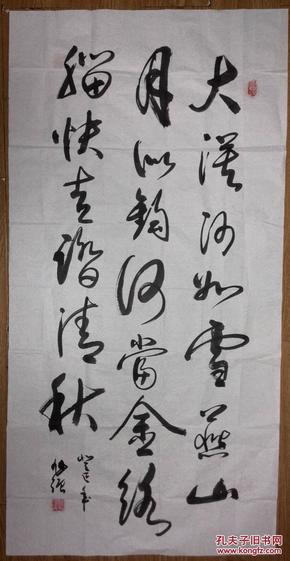 大漠沙如雪燕山
月似钩何當金络
腦快走踏清秋
癸巳年
孔夫子旧书网